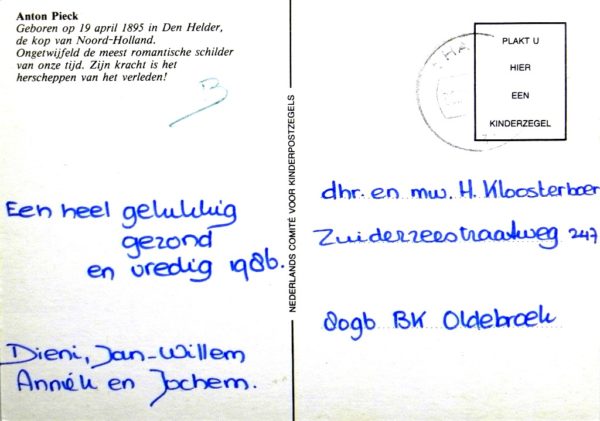 Anton Pieck
Geboren op 19 april 1895 in Den Helder,
de kop van Noord-Holland.
Ongetwijfeld de meest romantische schilder
van onze tijd. Zijn kracht is het
herscheppen van het verleden!
B
Een heel gelukkig
gezond
en vredig 1986.
Dieni, Jan-Willem
Anneke en Jochem.
NEDERLANDS COMITÉ VOOR KINDERPOSTZEGELS
PLAKT U
HIER
EEN
KINDERZEGEL
dhr. en mw. H. Kloosterboer
Zuiderzeestraatweg 247
8096 BK Oldebroek